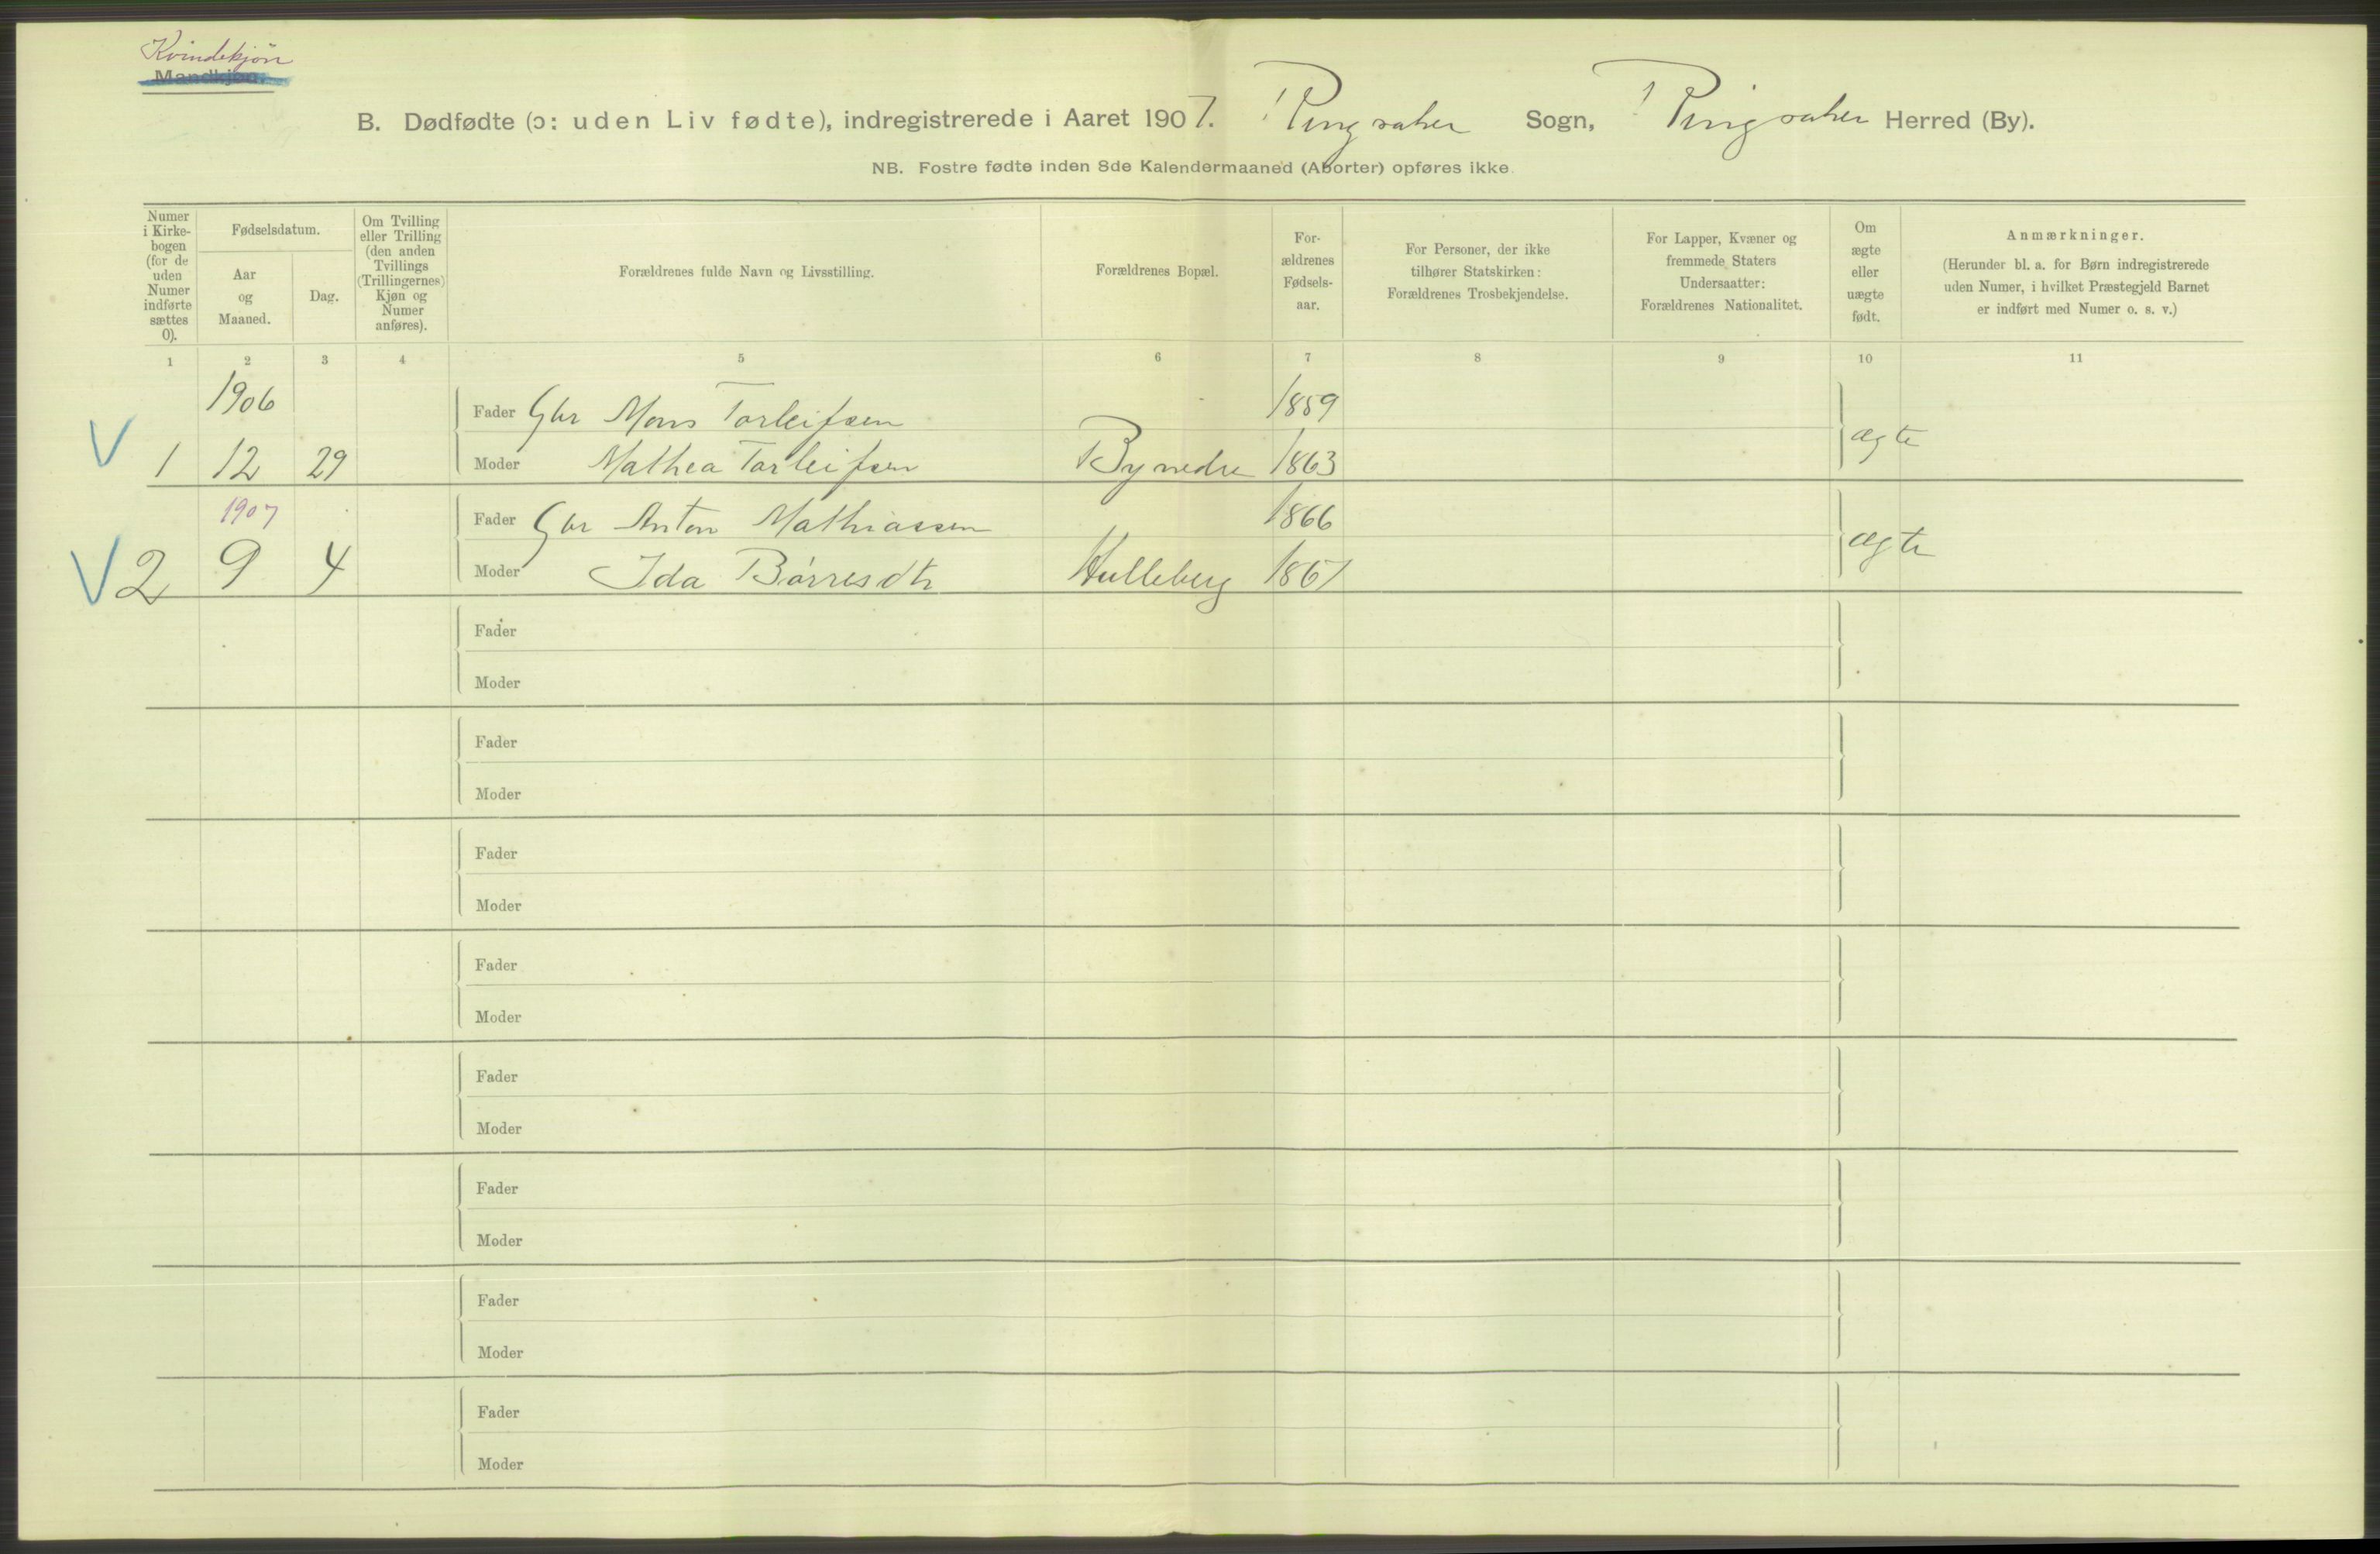 Kvindekjøn
Mandkjøn.
B. Dødfødte (ɔ: uden Liv fødte), indregistrerede i Aaret 1907. Ringsaker Sogn, Ringsaker Herred (By).
NB. Fostre fødte inden 8de Kalendermaaned (Aborter) opføres ikke.
Numer
i Kirke-
bogen
(for de
uden
Numer
indførte
sættes
0).
Fødselsdatum.
Aar
og
Maaned.
Dag.
Om Tvilling
eller Trilling
(den anden
Tvillings
(Trillingernes)
Kjøn og
Numer
anføres).
Forældrenes fulde Navn og Livsstilling.
Forældrenes Bopæl.
For-
ældrenes
Fødsels-
aar.
For Personer, der ikke
tilhører Statskirken:
Forældrenes Trosbekjendelse.
For Lapper, Kvæner og
fremmede Staters
Undersaatter:
Forældrenes Nationalitet.
Om
ægte
eller
uægte
født.
Anmærkninger.
(Herunder bl. a. for Børn indregistrerede
uden Numer, i hvilket Præstegjeld Barnet
er indført med Numer o. s. v.)
1 2 3 4 5 6 7 8 9 10 11
1906 Fader Gbr Mons Torleifsen 1859
V 1 12 29 Moder Mathea Torleifsen By nedre 1863 ægte
1907 Fader Gbr Anton Mathiassen 1866
V 2 9 4 Moder Ida Børresdtr Hulleberg 1867 ægte
Fader
Moder
Fader
Moder
Fader
Moder
Fader
Moder
Fader
Moder
Fader
Moder
Fader
Moder
Fader
Moder